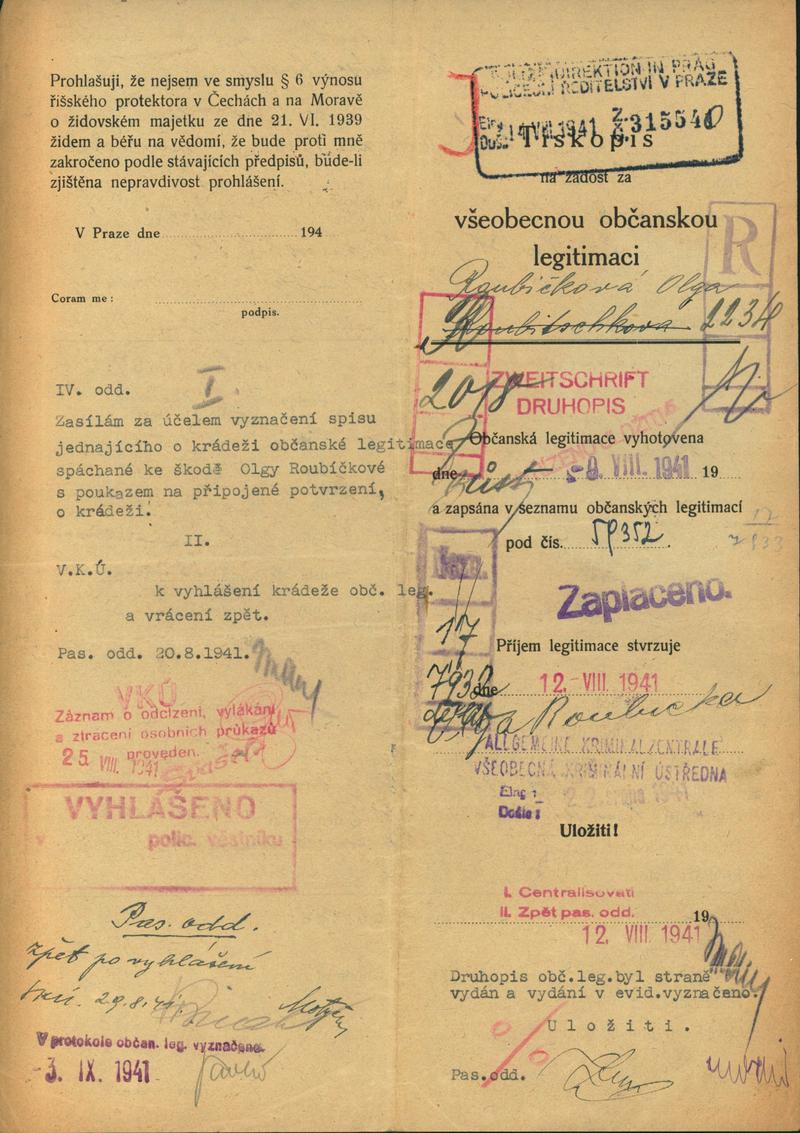 Prohlašuji, že nejsem ve smyslu § 6 výnosu
říšského protektora v Čechách a na Moravě
o židovském majetku ze dne 21. VI. 1939
židem a béřu na vědomí, že bude proti mně
zakročeno podle stávajících předpisů, bude-li
zjištěna nepravdivost prohlášení.
V Praze dne 194
Coram me :
podpis.
IV. odd. I
Zasílám za účelem vyznačení spisu
jednajícího o krádeži občanské legitimace
spáchané ke škodě Olgy Roubíčkové
s poukazem na připojené potvrzení,
o krádeži.
II.
V.K.Ú.
k vyhlášení krádeže obč. leg.
a vrácení zpět.
Pas. odd. 20.8.1941.
VKÚ
Záznam o odcizení, vylákání
a ztracení osobních průkazů
proveden.
25 VIII. 1941
VYHLÁŠENO
v polic. věstníku
Pas. odd.
zpět po vyhlášení
29.8.41.
V protokole občan. leg. vyznačeno.
-3. IX. 1941
POLIZEIDIREKTION IN PRAG
POLICEJNÍ ŘEDITELSTVÍ V PRAZE
VIII 1941 Z 315540
Tiskopis
na žádost za
všeobecnou občanskou
legitimaci
R
Roubíčková Olga
Roubitschkova 2234
2018
ZWEITSCHRIFT
DRUHOPIS
Občanská legitimace vyhotovena
dne -8. VIII. 1941 19
a zapsána v seznamu občanských legitimací
pod čís. 59352.
Zaplaceno.
17
Příjem legitimace stvrzuje
7932
dne 12. VIII. 1941
Olga Roubíčka
ALLGEMEINE KRIMINALZENTRALE
VŠEOBECNÁ KRIMINÁLNÍ ÚSTŘEDNA
Eing.:
Došlo:
Uložiti!
I. Centralisovati
II. Zpět pas. odd.
19
12. VIII 1941
Druhopis obč.leg.byl straně
vydán a vydání v evid.vyznačeno.
Uložiti.
Pas.odd.